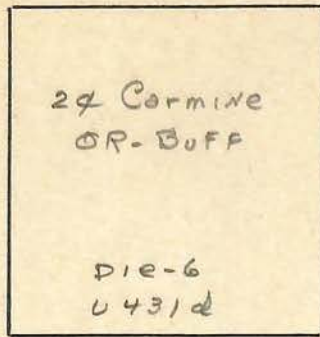 2¢ Carmine
OR-BUFF
DIE-6
U431d